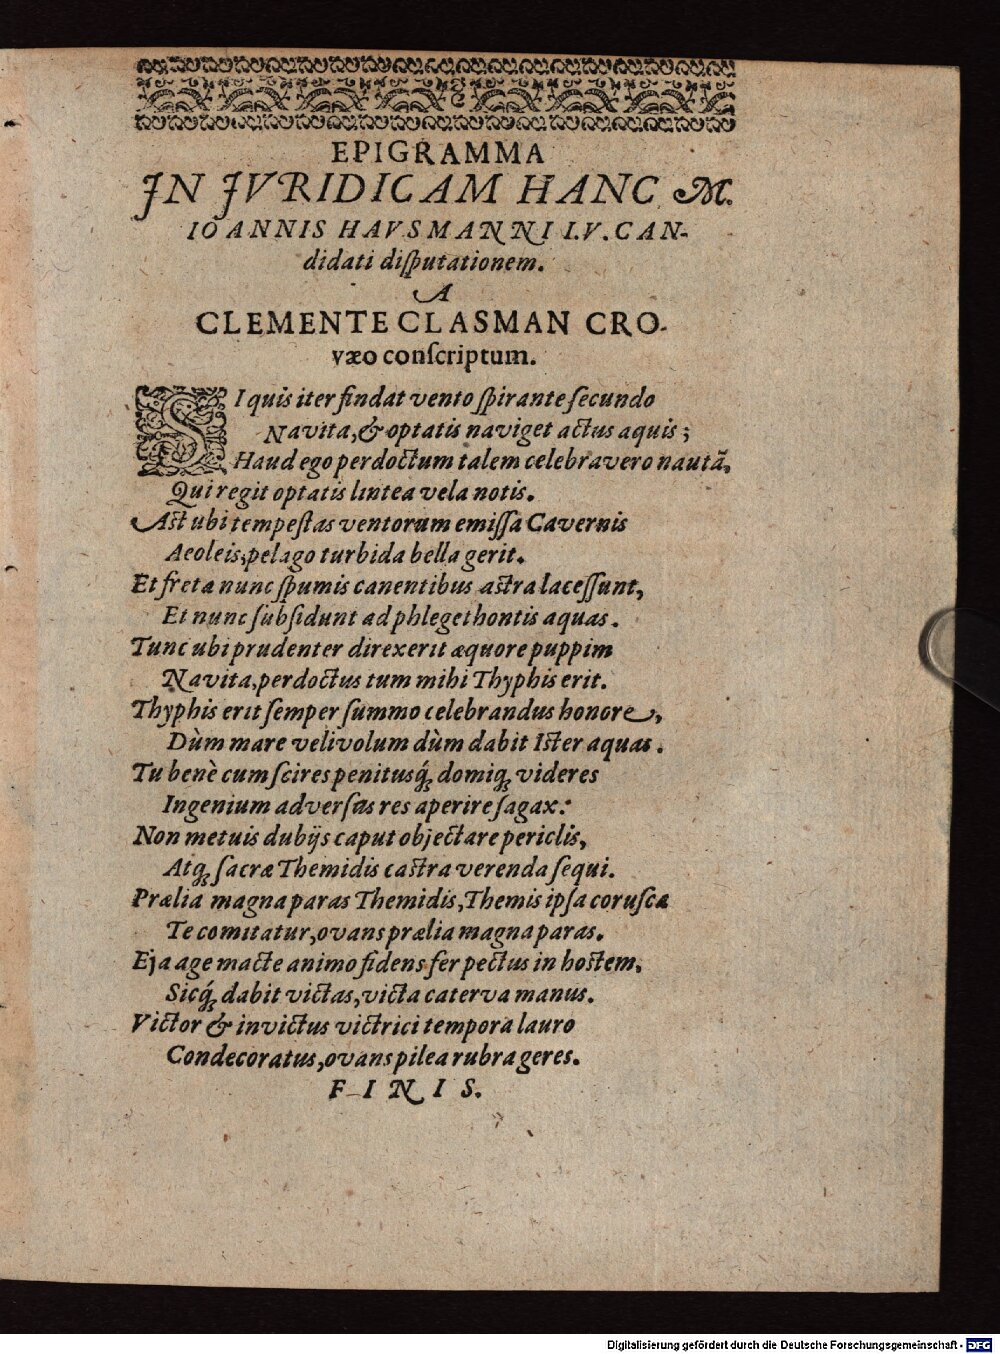 EPIGRAMMA
IN JVRIDICAM HANC M.
IOANNIS HAVSMANNI I.V. CAN-
didati diſputationem.
A
CLEMENTE CLASMAN CRO-
væo conſcriptum.
SI quis iter findat vento ſpirante ſecundo
Navita, & optatis naviget actus aquis;
Haud ego perdoctum talem celebravero nautã,
Qui regit optatis lintea vela notis.
Aſt ubi tempeſtas ventorum emiſſa Cavernis
Aeoleis, pelago turbida bella gerit.
Et freta nunc ſpumis canentibus aſtra laceſſunt,
Et nunc ſubſidunt ad phlegethontis aquas.
Tunc ubi prudenter direxerit æquore puppim
Navita, perdoctus tum mihi Thyphis erit.
Thyphis erit ſemper ſummo celebrandus honore,
Dùm mare velivolum dùm dabit Iſter aquas.
Tu benè cum ſcires penitusq́; domiq; videres
Ingenium adverſas res aperire ſagax:
Non metuis dubijs caput objectare periclis,
Atq; ſacræ Themidis caſtra verenda ſequi.
Prælia magna paras Themidis, Themis ipſa coruſcæ
Te comitatur, ovans prælia magna paras.
Eja age macte animo fidens fer pectus in hoſtem,
Sicq́; dabit victas, victa caterva manus.
Victor & invictus victrici tempora lauro
Condecoratus, ovans pilea rubra geres.
FINIS.
Digitalisierung gefördert durch die Deutsche Forschungsgemeinschaft - DFG